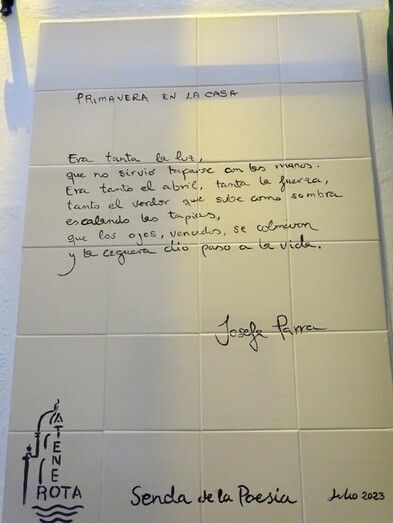 PRIMAVERA EN LA CASA
Era tanta la luz,
que no sirvió taparse con las manos.
Era tanto el abril, tanta la fuerza,
tanto el verdor que sube como sombra
escalando las tapias,
que los ojos, vencidos, se colmaron
y la ceguera dio paso a la vida.
Josefa Parra
ATENEO
ROTA
Senda de la Poesía
Julio 2023